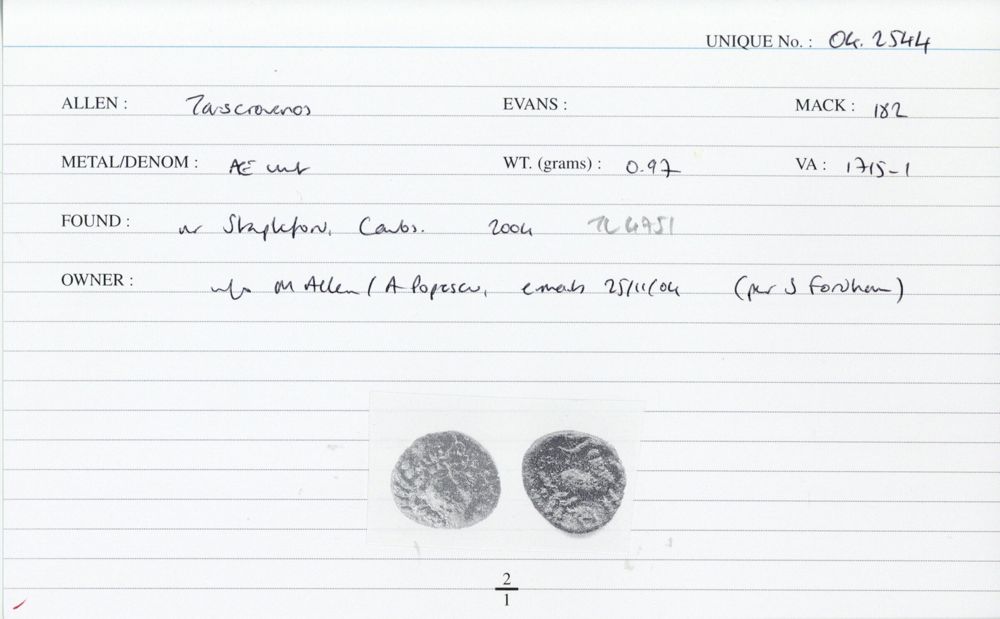 UNIQUE No. : 04. 2544
ALLEN : Tasciovanos EVANS : MACK : 182
METAL/DENOM : Æ unit WT. (grams) : 0.97 VA : 1715-1
FOUND : nr Stapleford, Cambs. 2004 TL 4751
OWNER : info M Allen / A Popescu, emails 25/11/04 (per S Fordham)
2
1